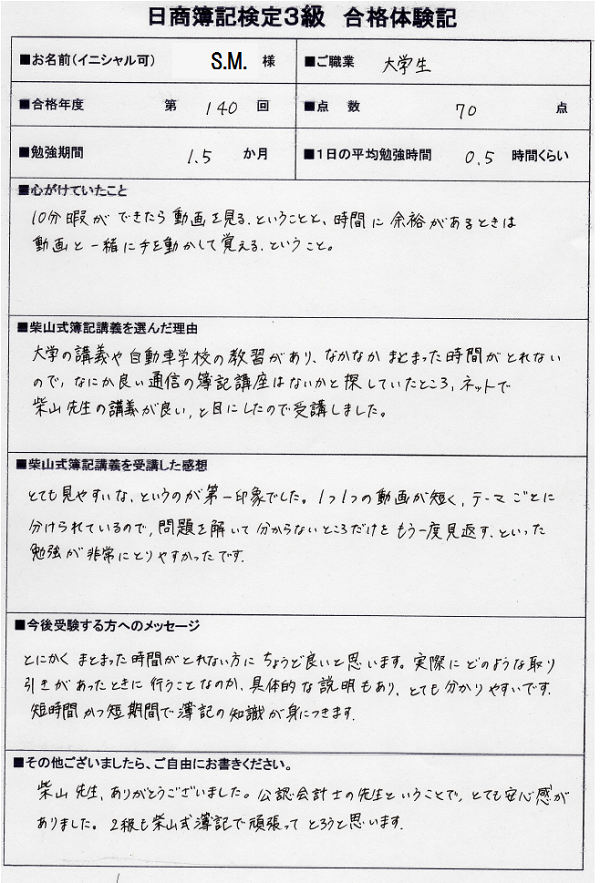 日商簿記検定3級 合格体験記
■お名前(イニシャル可) S.M. 様 ■ご職業 大学生
■合格年度 第 140 回 ■点 数 70 点
■勉強期間 1.5 か月 ■1日の平均勉強時間 0.5 時間くらい
■心がけていたこと
10分暇ができたら動画を見る、ということと、時間に余裕があるときは
動画と一緒に手を動かして覚える、ということ。
■柴山式簿記講義を選んだ理由
大学の講義や自動車学校の教習があり、なかなかまとまった時間がとれない
ので、なにか良い通信の簿記講座はないかと探していたところ、ネットで
柴山先生の講義が良い、と目にしたので受講しました。
■柴山式簿記講義を受講した感想
とても見やすいな、というのが第一印象でした。1つ1つの動画が短く、テーマごとに
分けられているので、問題を解いて分からないところだけをもう一度見返す、といった
勉強が非常にとりやすかったです。
■今後受験する方へのメッセージ
とにかくまとまった時間がとれない方にちょうど良いと思います。実際にどのような取り
引きがあったときに行うことなのか、具体的な説明もあり、とても分かりやすいです。
短時間かつ短期間で簿記の知識が身につきます。
■その他ございましたら、ご自由にお書きください。
柴山先生、ありがとうございました。公認会計士の先生ということで、とても安心感が
ありました。2級も柴山式簿記で頑張ってとろうと思います。